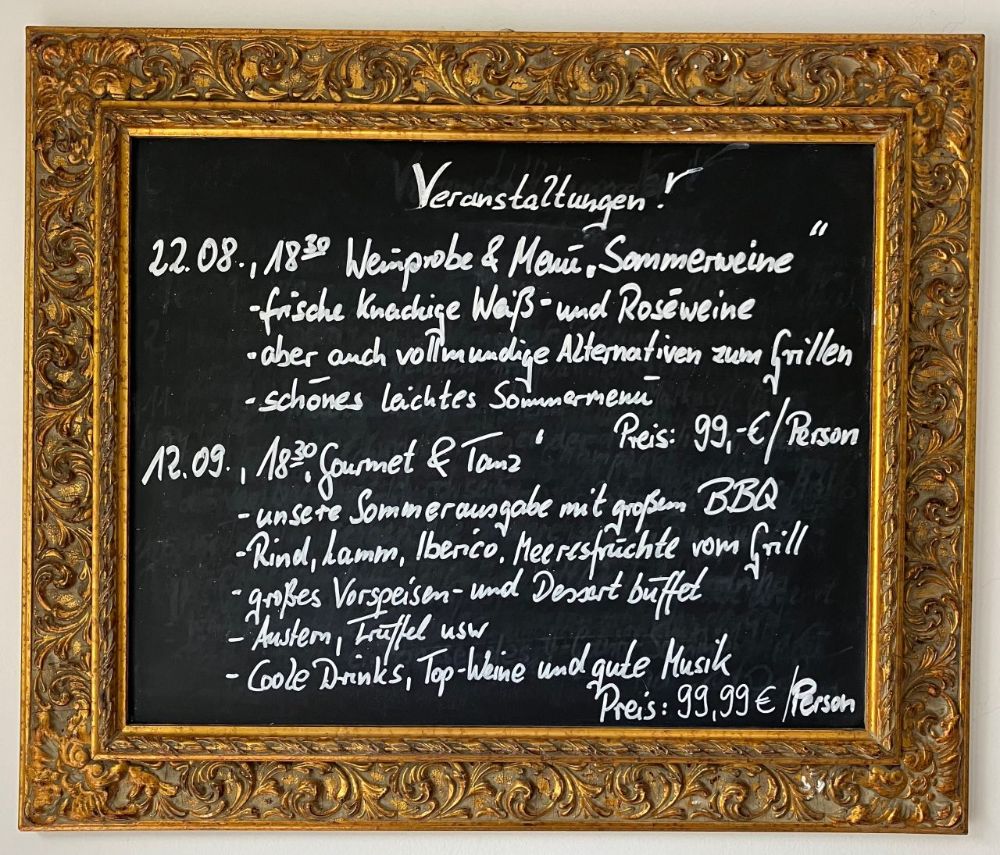 Veranstaltungen!
22.08., 18³⁰ Weinprobe & Menü „Sommerweine“
- frische knackige Weiß- und Roséweine
- aber auch vollmundige Alternativen zum Grillen
- schönes leichtes Sommermenü
Preis: 99,-€/Person
12.09., 18³⁰ „Gourmet & Tanz“
- unsere Sommerausgabe mit großem BBQ
- Rind, Lamm, Iberico, Meeresfrüchte vom Grill
- großes Vorspeisen- und Dessert buffet
- Austern, Trüffel usw
- Coole Drinks, Top-Weine und gute Musik
Preis: 99,99 € /Person